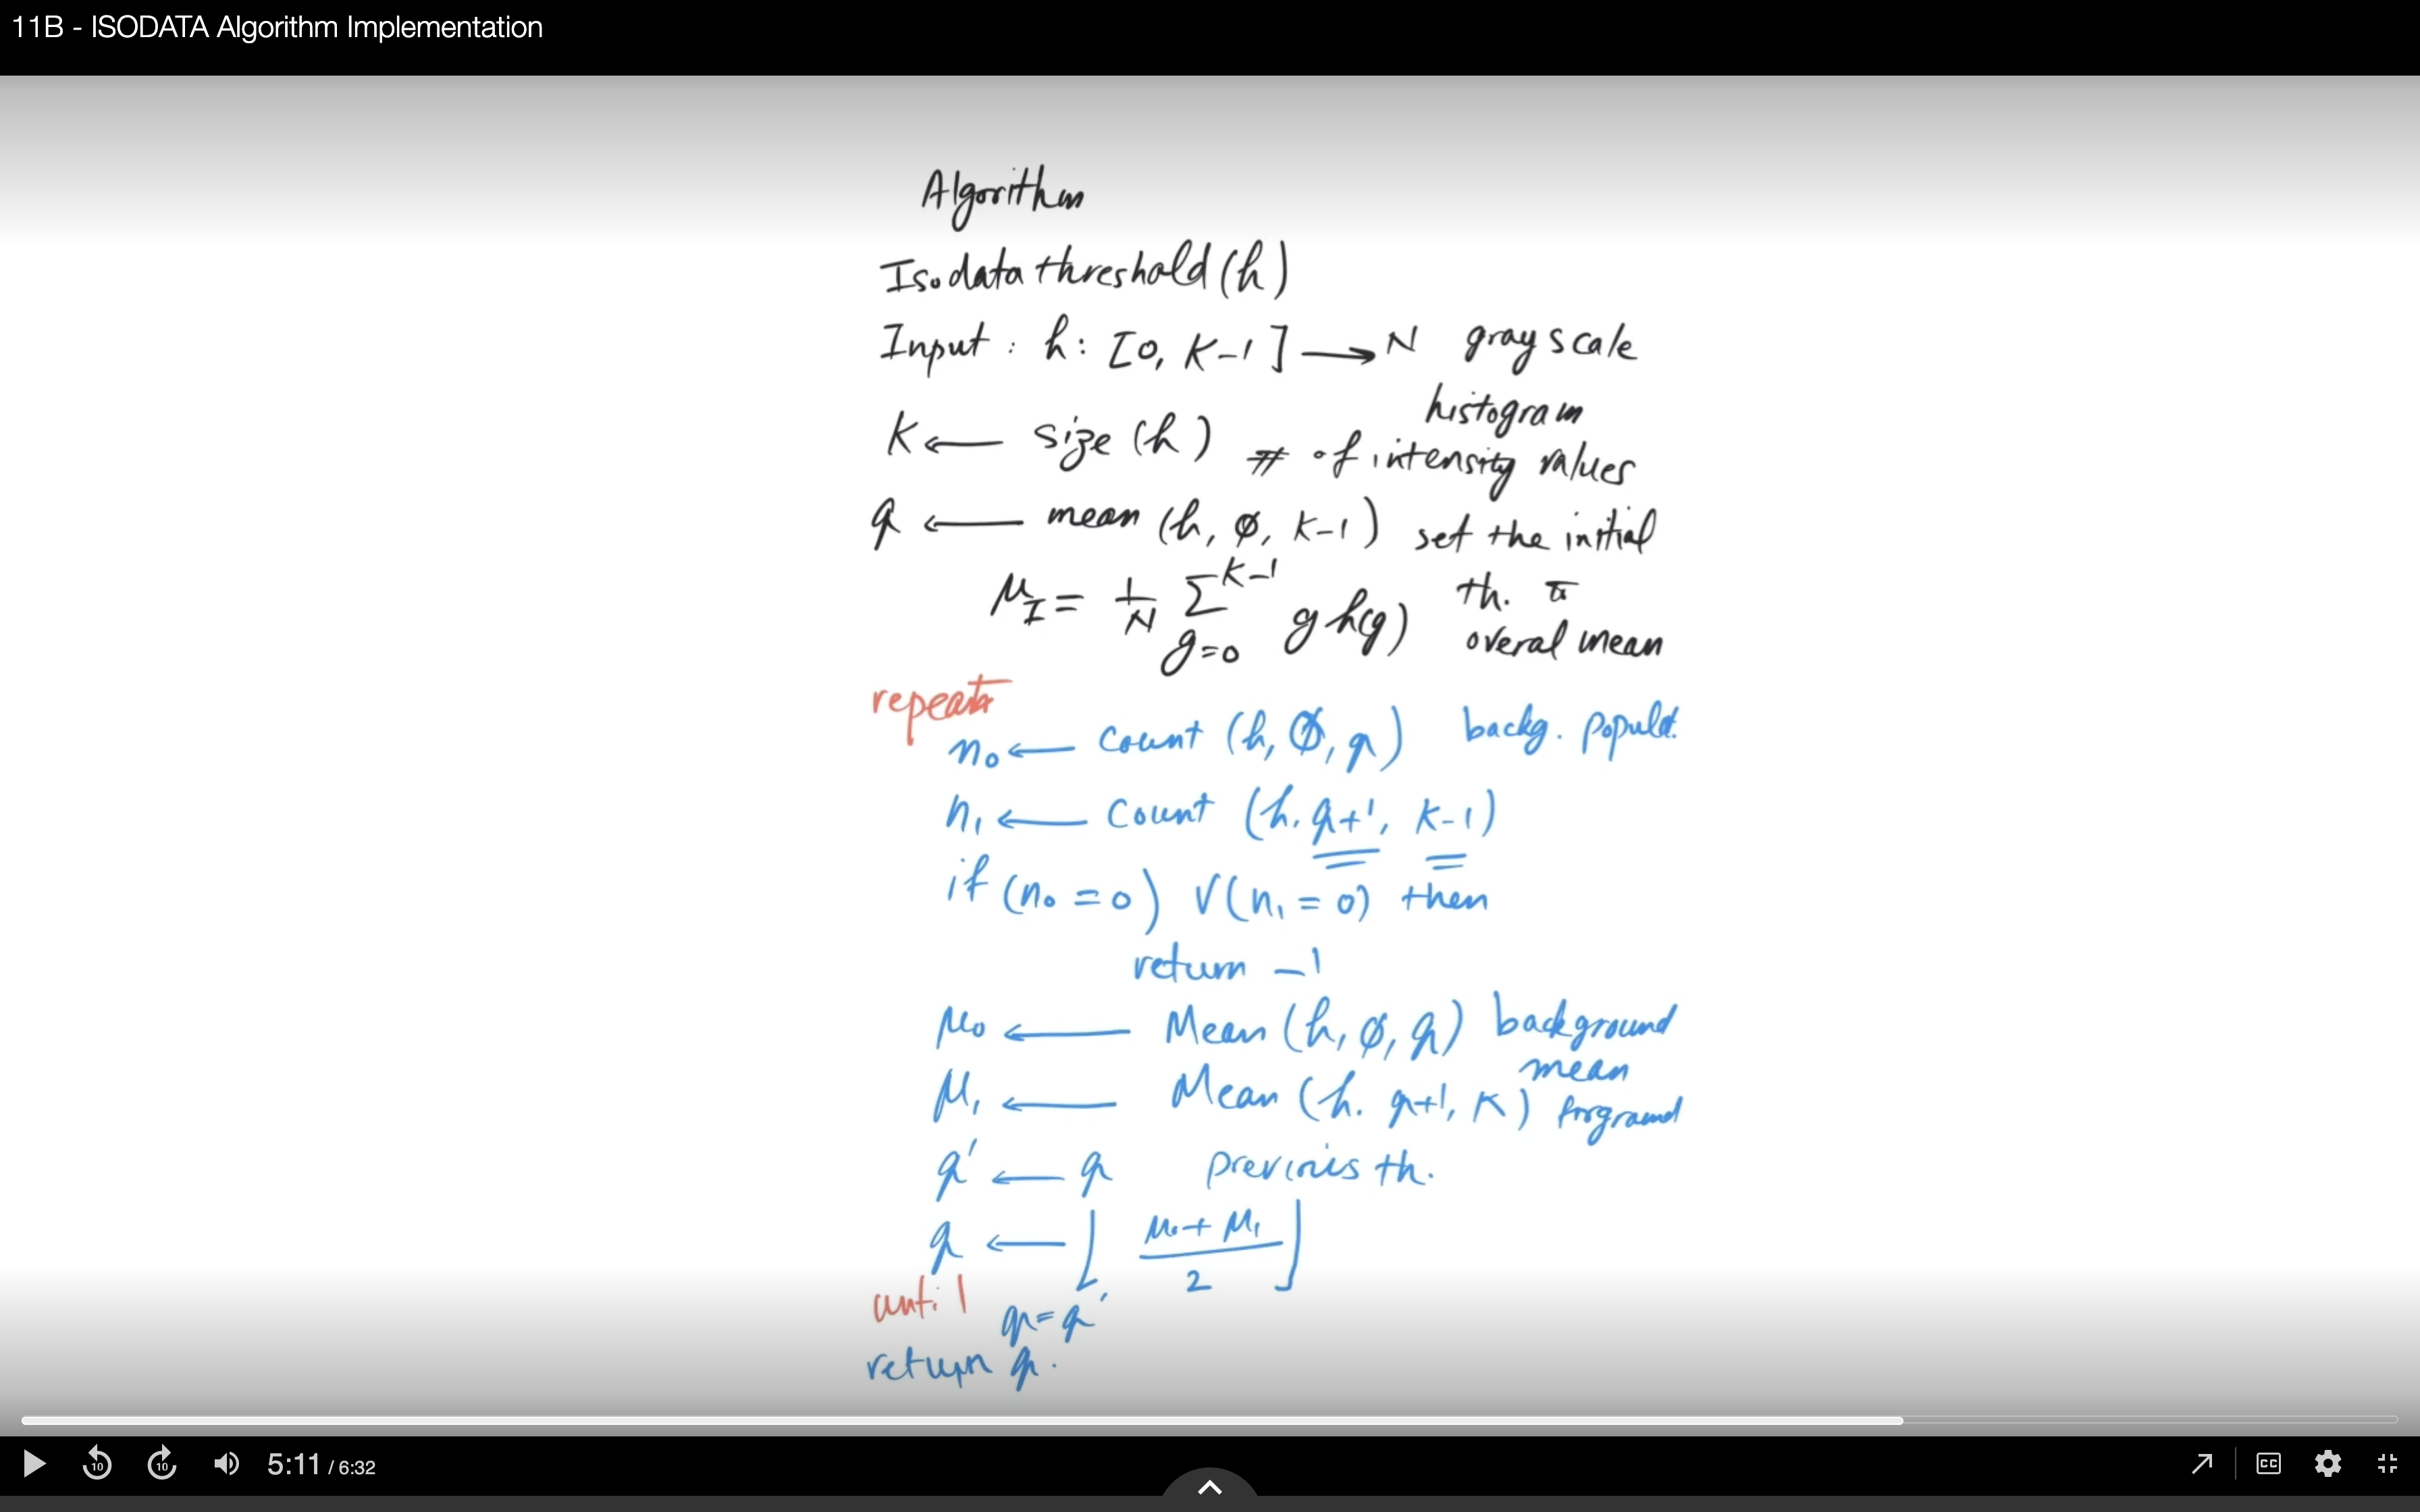 11B - ISODATA Algorithm Implementation
Algorithm
Isodata threshold (h)
Input : h: [0, K-1] → N gray scale
histogram
K ← size (h) # of intensity values
q ← mean (h, ∅, K-1) set the initial
th. to
overal mean
μ_I = 1/N Σ^{K-1}_{g=0} g h(g)
repeat
n₀ ← Count (h, ∅, q) backg. populat.
n₁ ← Count (h, q+1, K-1)
if (n₀ = 0) ∨ (n₁ = 0) then
return -1
μ₀ ← Mean (h, ∅, q) background
mean
μ₁ ← Mean (h. q+1, K) forground
q' ← q previous th.
q ← ⌊ μ₀ + μ₁ / 2 ⌋
until q = q'
return q.
10
10
5:11 / 6:32
CC